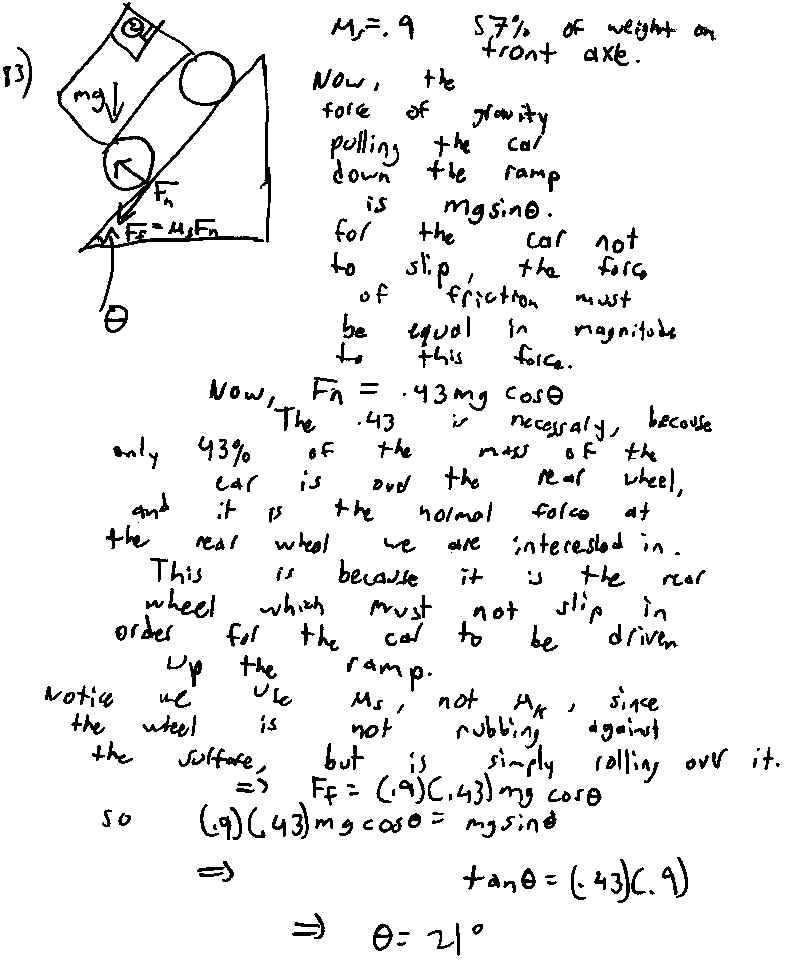 83)
μs = .9   57% of weight on
front axle.
mg
Fn
Ff = μsFn
θ
Now, the
force of gravity
pulling the car
down the ramp
is mg sinθ.
for the car not
to slip, the force
of friction must
be equal in magnitude
to this force.
Now, Fn = .43 mg cosθ
The .43 is necessary, because
only 43% of the mass of the
car is over the rear wheel,
and it is the normal force at
the rear wheel we are interested in.
This is because it is the rear
wheel which must not slip in
order for the car to be driven
up the ramp.
Notice we use μs, not μk, since
the wheel is not rubbing against
the surface, but is simply rolling over it.
=> Ff = (.9)(.43) mg cosθ
so (.9)(.43) mg cosθ = mg sinθ
=> tanθ = (.43)(.9)
=> θ = 21°